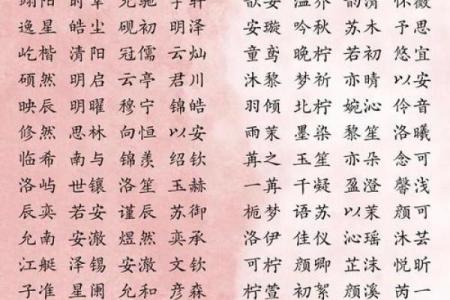 逸星 皓尘 砚初 明泽 安璇 吟秋 苏木 予思
屹楷 清阳 冠儒 云灿 童鸢 晚柠 若初 悠宜
硕然 明启 云亭 君川 沐黎 梦祈 亦晴 以安
映辰 明曜 穆宁 锦皓 羽倾 北柠 婉沁 伶音
修然 思林 向恒 以安 雨茉 墨染 黎笙 洛曦
临希 南与 锦羡 绍钦 苒之 玉笙 亦朵 念可
洛屿 世镶 洛笙 玉赫 一苒 千凝 盈澄 馨浅
辰奕 若安 谨辰 苏御 栀梦 语苏 以茉 颜可
允南 安澈 煜然 奕承 洛伊 佳仪 沁瑶 沐芸
江艇 泽锡 安澈 文钦 可柠 颜卿 芷沫 悦昕
子准 星阑 允和 彦森 可萱 初絮 颜汐 芮一